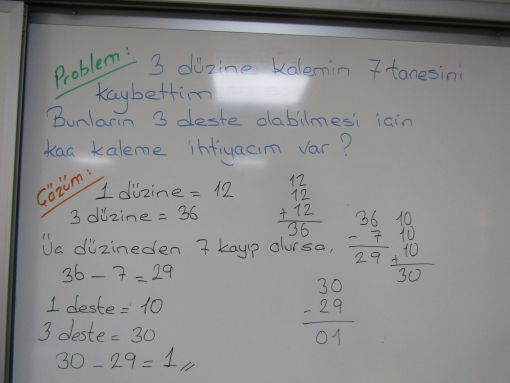 Problem: 3 düzine kalemin 7 tanesini
kaybettim
Bunların 3 deste olabilmesi için
kaç kaleme ihtiyacım var?
Çözüm:
1 düzine = 12
3 düzine = 36
12
12
+ 12
36
Üç düzineden 7 kayıp olursa,
36 - 7 = 29
36
- 7
29
10
10
+ 10
30
1 deste = 10
3 deste = 30
30 - 29 = 1,,
30
- 29
01